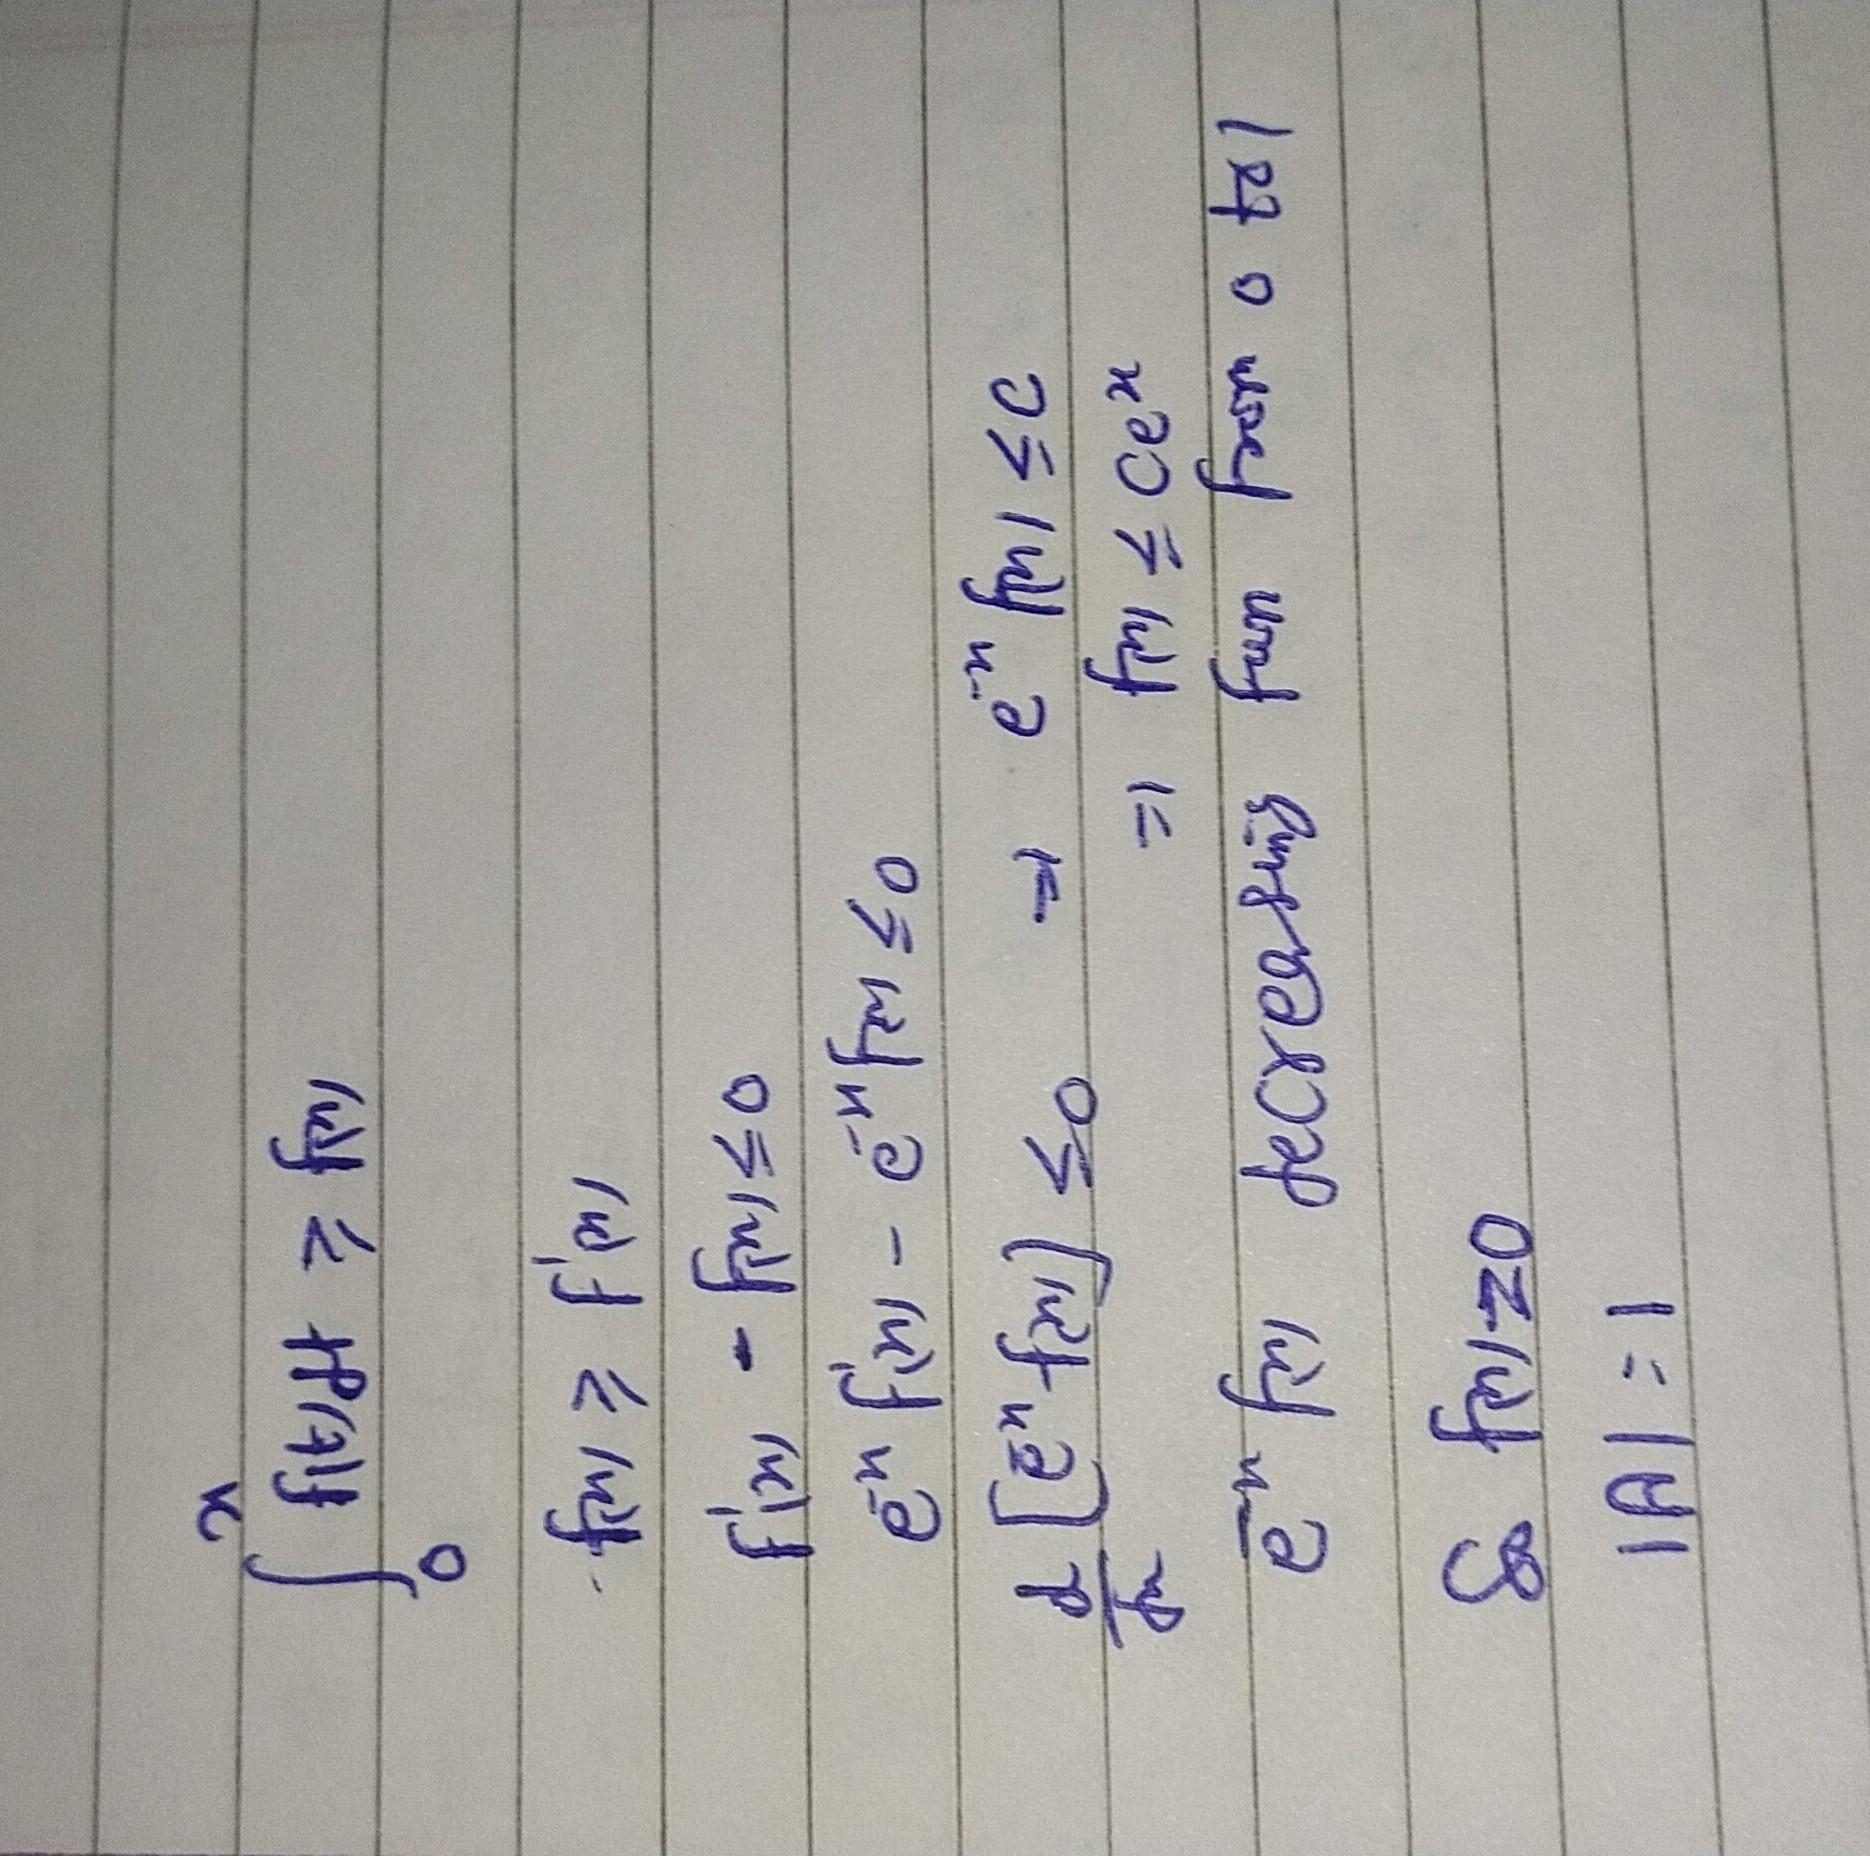 ∫₀ˣ f(t)dt ≥ f(x)
f(x) ≥ f'(x)
f'(x) - f(x) ≤ 0
e⁻ˣ f'(x) - e⁻ˣ f(x) ≤ 0
d/dx [e⁻ˣ f(x)] ≤ 0 = e⁻ˣ f(x) ≤ C
= f(x) ≤ Ceˣ
e⁻ˣ f(x) decreasing fun from 0 to 1
& f(x)=0
|A| = 1